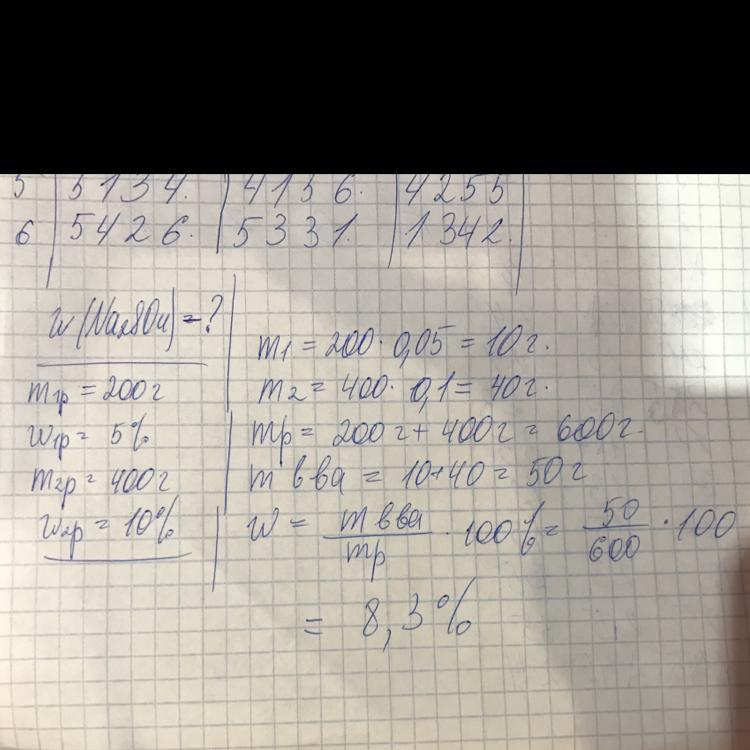 5 | 5 1 3 4. | 4 1 5 6. | 4 2 5 5
6 | 5 4 2 6. | 5 3 3 1. | 1 3 4 2.
w (Na2SO4) = ?
m1р = 200г
w1р = 5%
m2р = 400г
w2р = 10%
m1 = 200 · 0,05 = 10г.
m2 = 400 · 0,1 = 40г.
mр = 200г + 400г = 600г.
m в ва = 10+40 = 50г
w = m в ва / mр · 100% = 50 / 600 · 100
= 8,3%